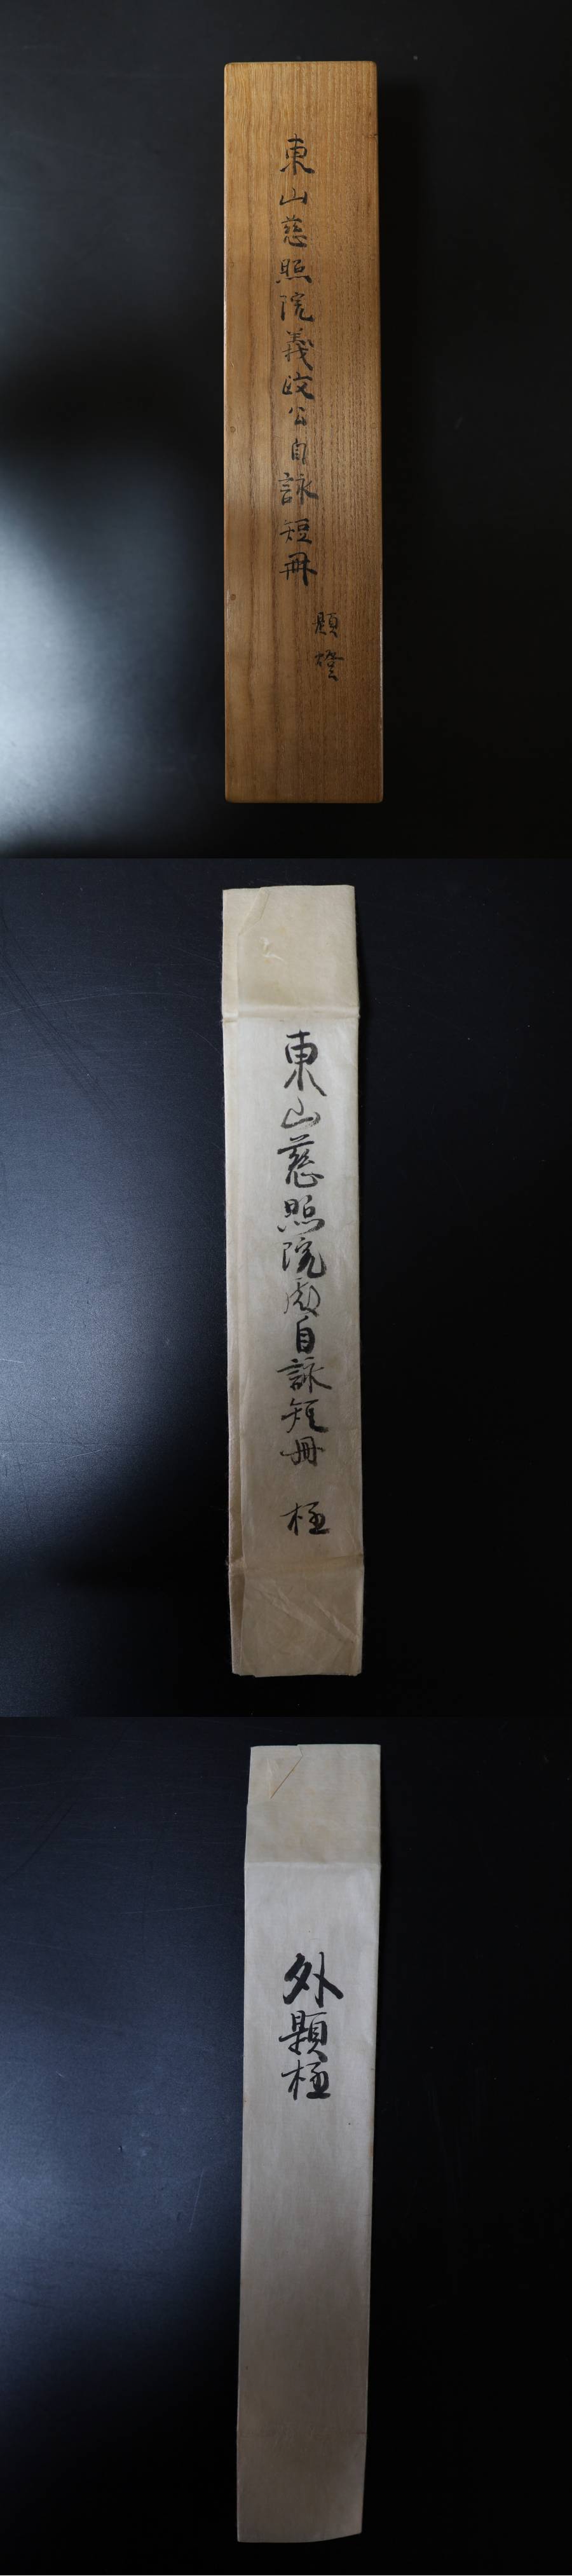 東山慈照院義政公自詠短冊
顕證
東山慈照院殿自詠短冊 極
外題極